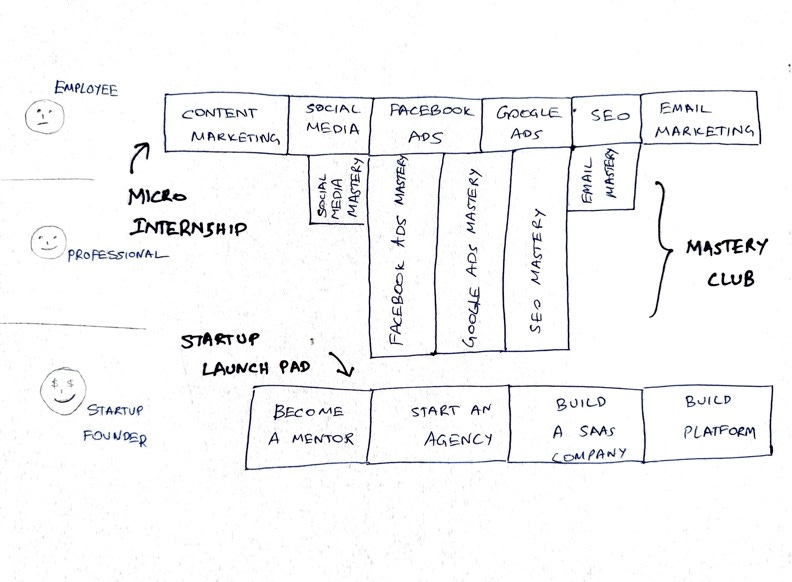 EMPLOYEE
CONTENT
MARKETING
SOCIAL
MEDIA
FACEBOOK
ADS
GOOGLE
ADS
SEO
EMAIL
MARKETING
MICRO
INTERNSHIP
SOCIAL
MEDIA
MASTERY
FACEBOOK ADS MASTERY
GOOGLE ADS MASTERY
SEO MASTERY
EMAIL
MASTERY
MASTERY
CLUB
PROFESSIONAL
STARTUP
LAUNCH PAD
STARTUP
FOUNDER
BECOME
A MENTOR
START AN
AGENCY
BUILD
A SAAS
COMPANY
BUILD
PLATFORM